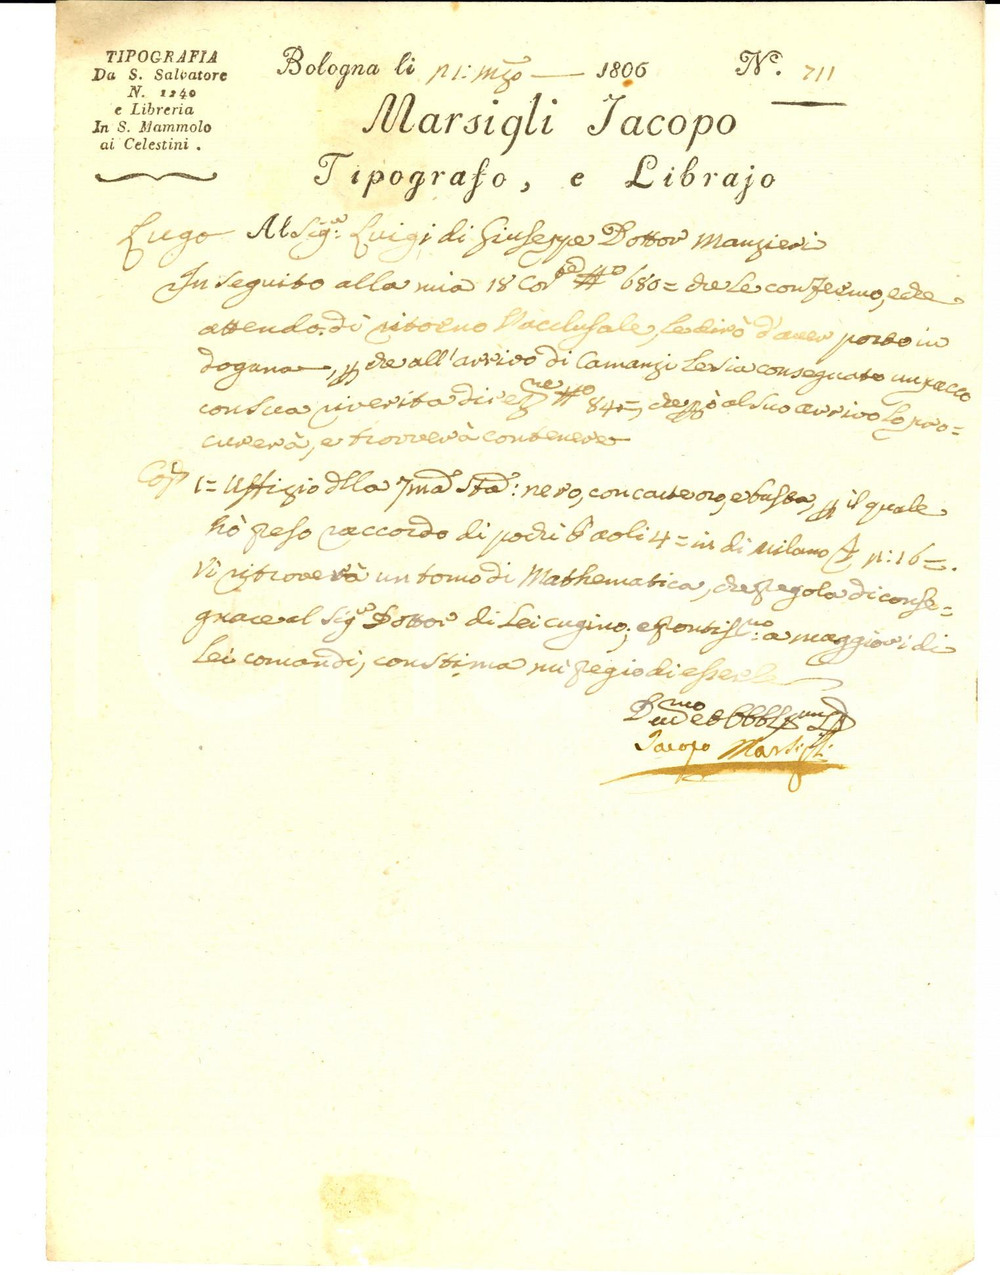 TIPOGRAFIA
Da S. Salvatore
N. 1240
e Libreria
In S. Mammolo
ai Celestini .
Bologna li 21: Mzo 1806 N.° 711
Marsigli Jacopo
Tipografo, e Librajo
Lugo Al Sig.r Luigi di Giuseppe Dottor Manzieri
In seguito alla mia 18 Cor.te N.° 680= che le confermo, e che
attendo di ritorno l'acclusale, le dirò d'aver posto in
dogana che all'arrivo di Camanzi le sia consegnato un pacco
con sua riverita direz.ne N.° 84=, che al suo arrivo lo pro=
curerà, e troverà contenere
1= Uffizio della 7ma Sta: nero, con carte oro, e busta, il quale
hò preso raccordo di Paoli 4= in di Milano 16=.
Vi ritroverà un tomo di Mathematica, che pregola di conse=
gnare al Sig.r Dottor di Lei cugino; e prontis.mo a maggiori di
Lei comandi, con stima mi pregio di esserle
Jacopo Marsigli